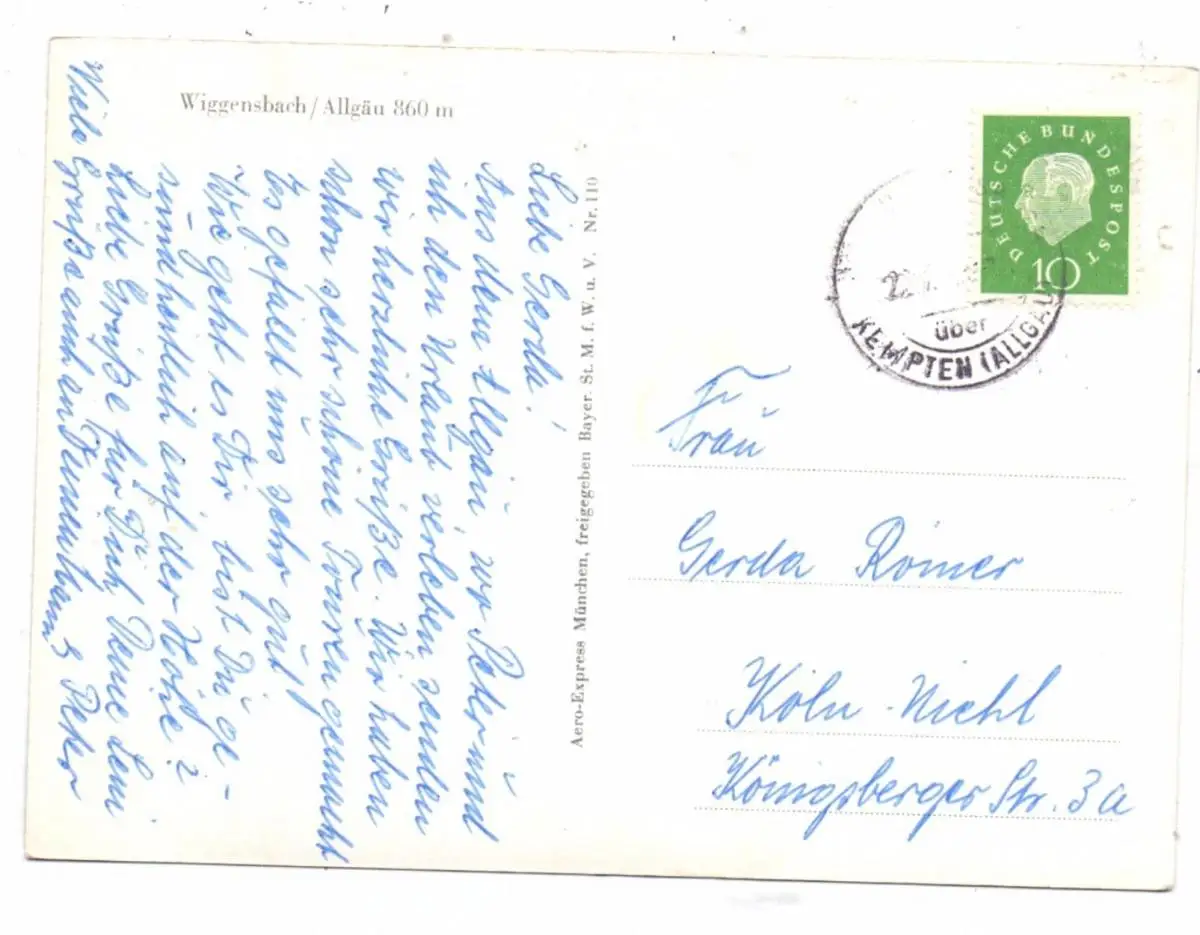 Wiggensbach/Allgäu 860 m
Liebe Gerda!
Aus dem Allgäu, wo Peter und
ich den Urlaub verleben senden
wir herzliche Grüße. Wir haben
schon sehr schöne Touren gemacht
Es gefällt uns sehr gut
Wie geht es Dir bist Du ge-
sundheitlich auf der Höhe?
Liebe Grüße für Dich Deine
Viele Grüße auch an Peter
Aero-Express München, freigegeben Bayer. St. M. f. W. u. V. Nr. 110
DEUTSCHE BUNDESPOST
10
über
KEMPTEN (ALLGÄU
Frau
Gerda Römer
Köln-Niehl
Königsberger Str. 3a